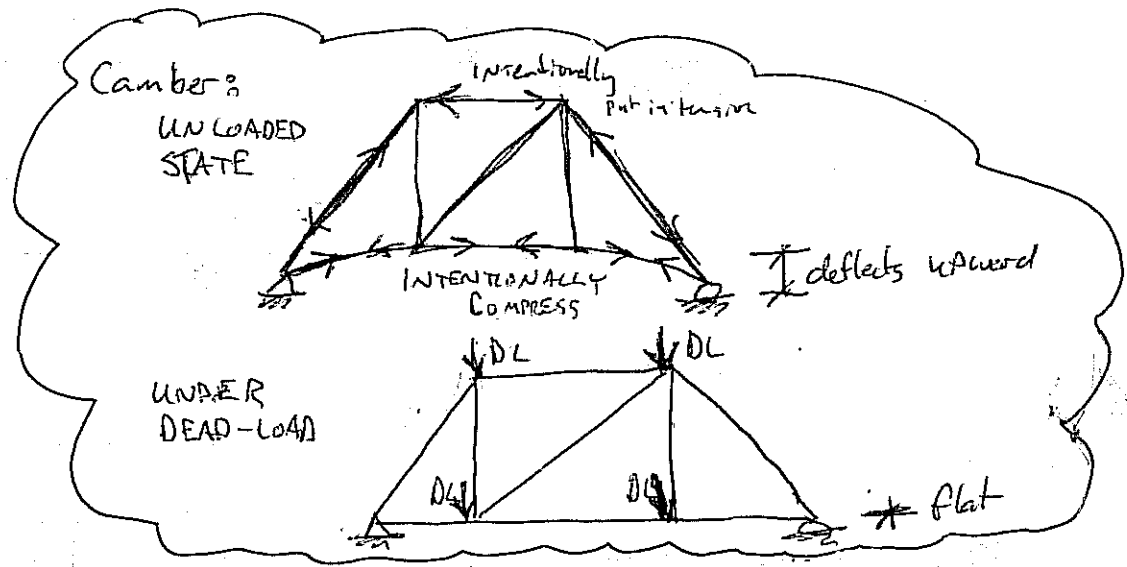 Camber:
UNLOADED
STATE
INTENTIONALLY
Put in tension
INTENTIONALLY
COMPRESS
deflects upward
DL
DL
UNDER
DEAD-LOAD
DL
DL
flat